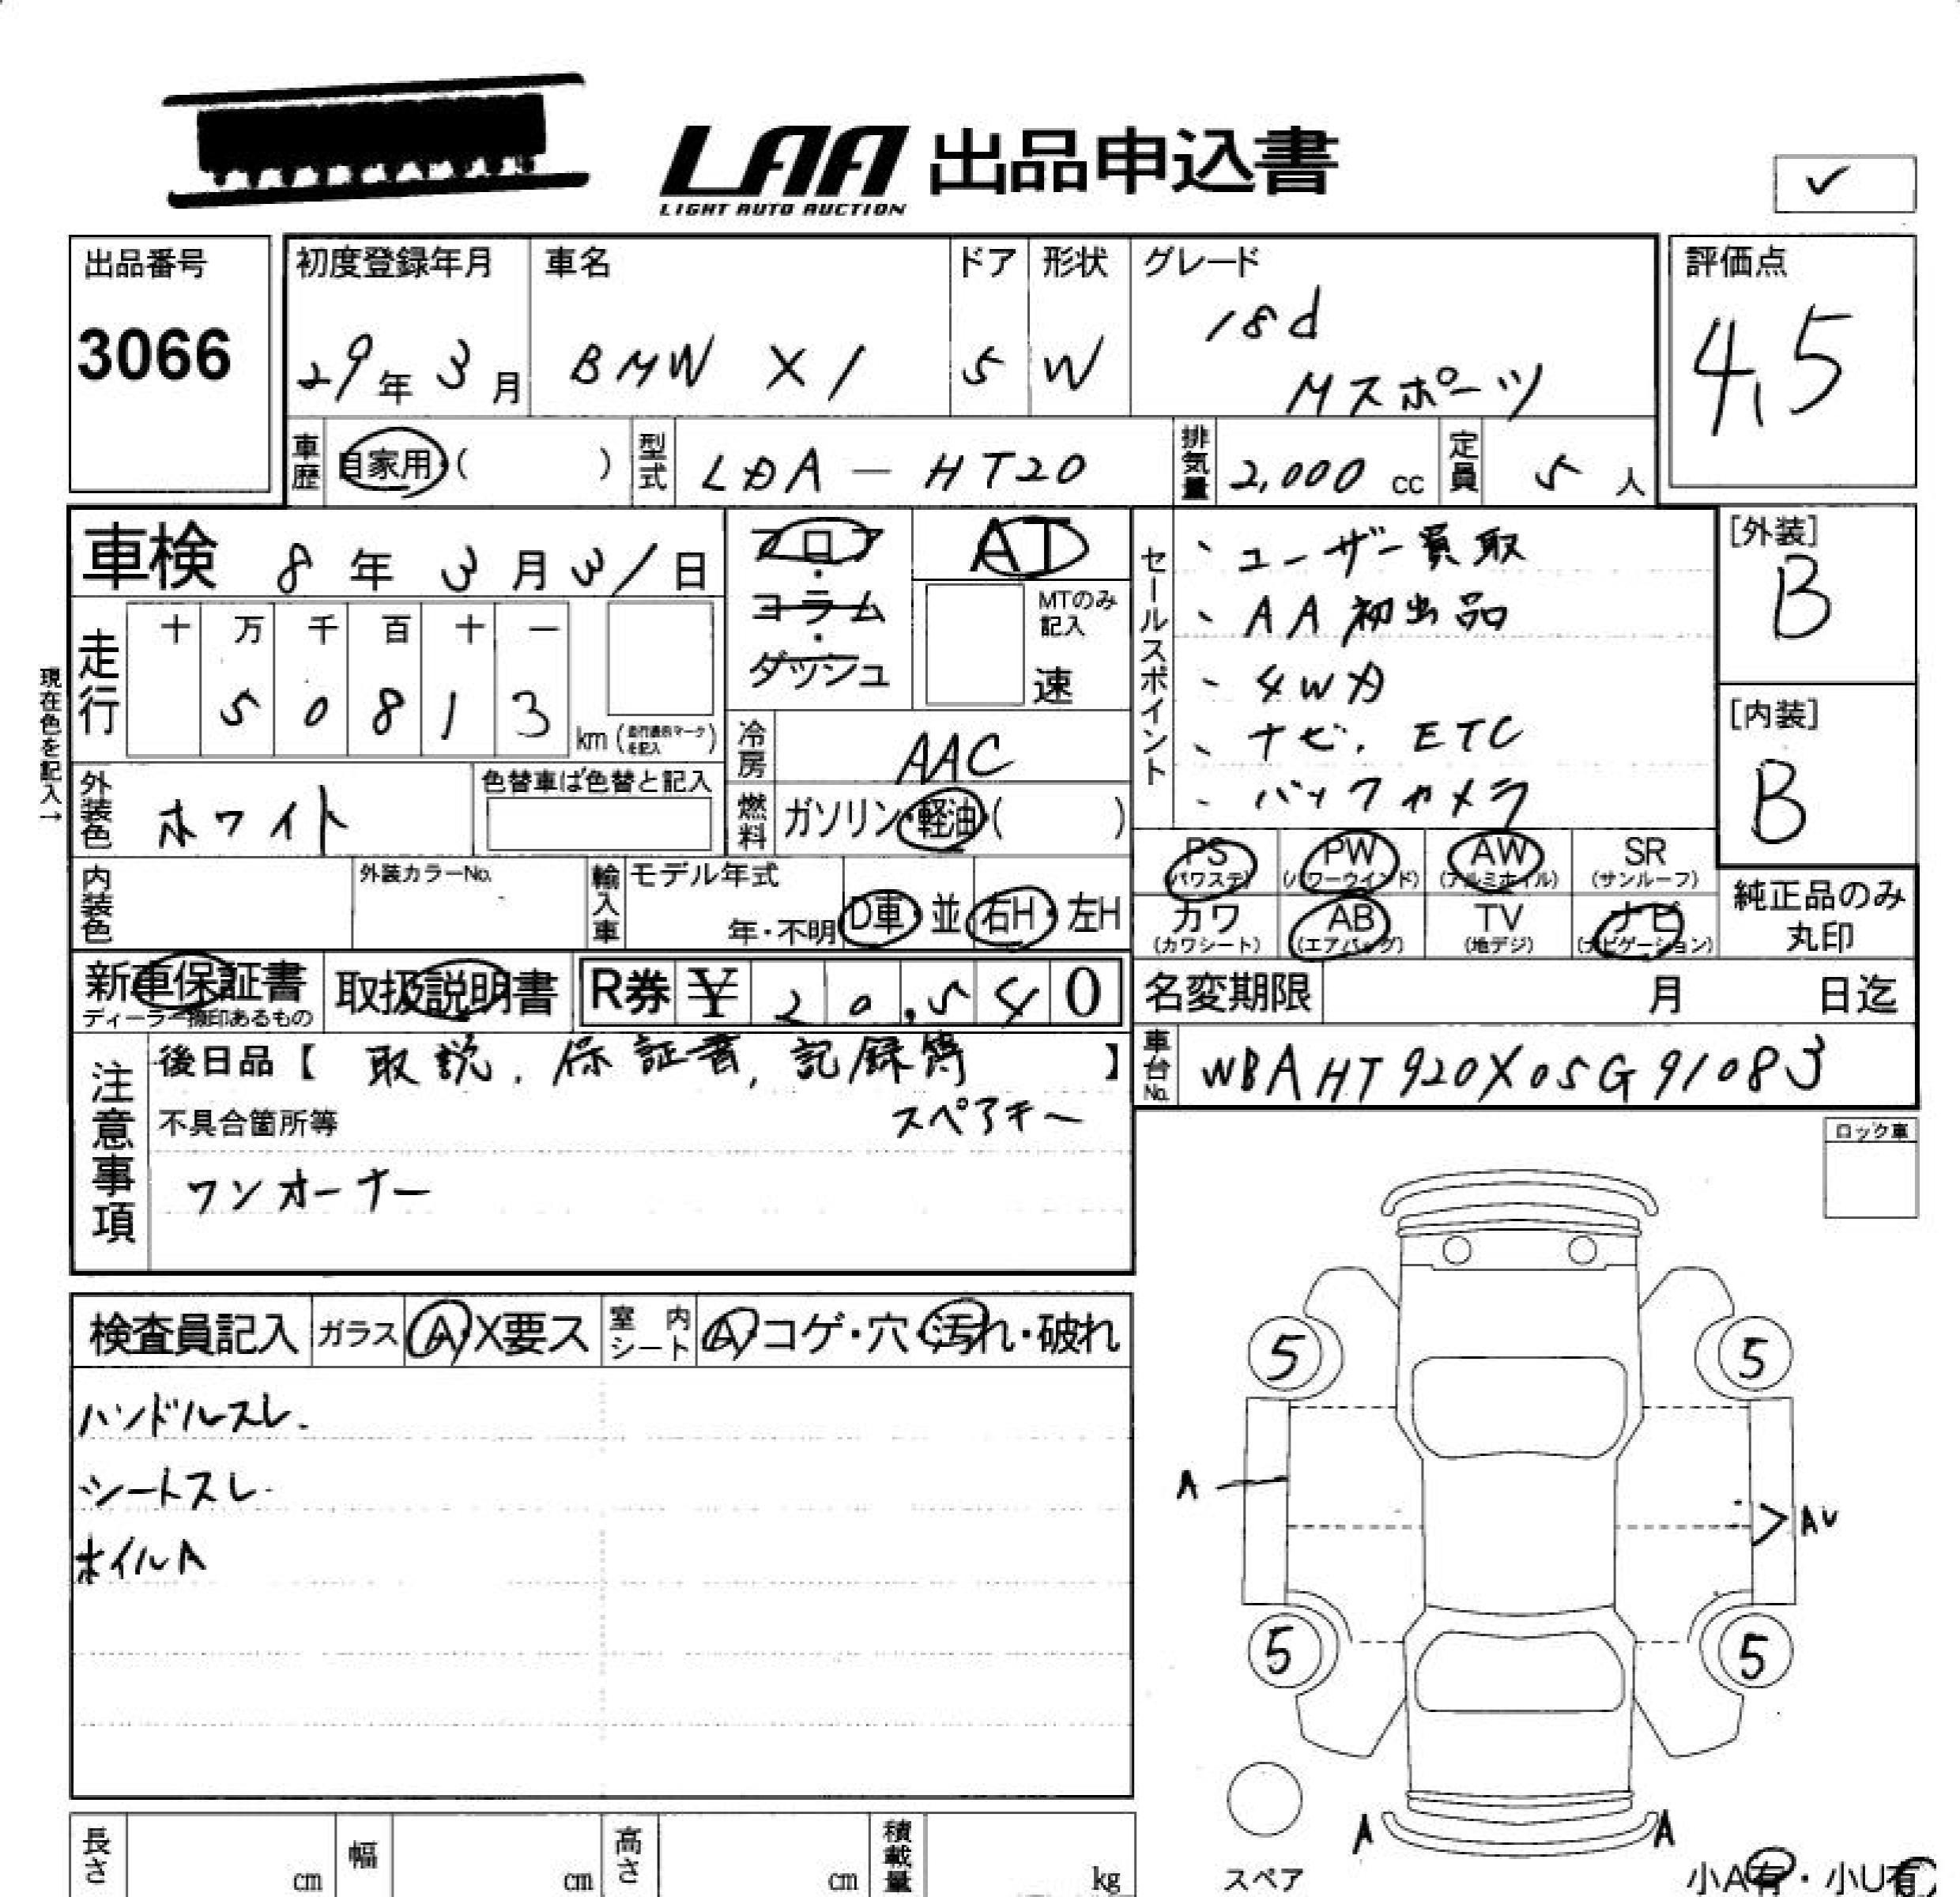 LAA 出品申込書
LIGHT AUTO AUCTION
✓
出品番号
3066
初度登録年月 車名 ドア 形状 グレード
29年 3月 BMW X1 5 W 18d
Mスポーツ
評価点
4.5
車歴 自家用・( ) 型式 LDA-HT20 排気量 2,000 cc 定員 5 人
車検 8年 3月 31日
フロア・コラム・ダッシュ
AT
MTのみ記入
速
走行 十 万 千 百 十 一
5 0 8 1 3 km
現在色を記入→
冷房 AAC
外装色 ホワイト 色替車は色替と記入
燃料 ガソリン・軽油・( )
内装色 外装カラーNo. 輸入車 モデル年式
年・不明 D車・並 右H・左H
セールスポイント
、ユーザー買取
、AA初出品
、4WD
、ナビ、ETC
、バックカメラ
[外装]
B
[内装]
B
PS PW AW SR
(パワステ) (パワーウインド) (アルミホイル) (サンルーフ)
カワ AB TV ナビ
(カワシート) (エアバッグ) (地デジ) (ナビゲーション)
純正品のみ
丸印
新車保証書 取扱説明書 R券 ¥ 20,540
ディーラー捺印あるもの
名変期限 月 日迄
車台No. WBAHT920X05G91083
注意事項
後日品【 取説、保証書、記録簿 】
スペアキー
不具合箇所等
ワンオーナー
ロック車
検査員記入 ガラス A・X要ス 室内シート A・コゲ・穴・汚れ・破れ
ハンドルスレ
シートスレ
ホイルA
5 5
A
AU
5 5
A A
スペア
小A有・小U有
長さ cm 幅 cm 高さ cm 積載量 kg